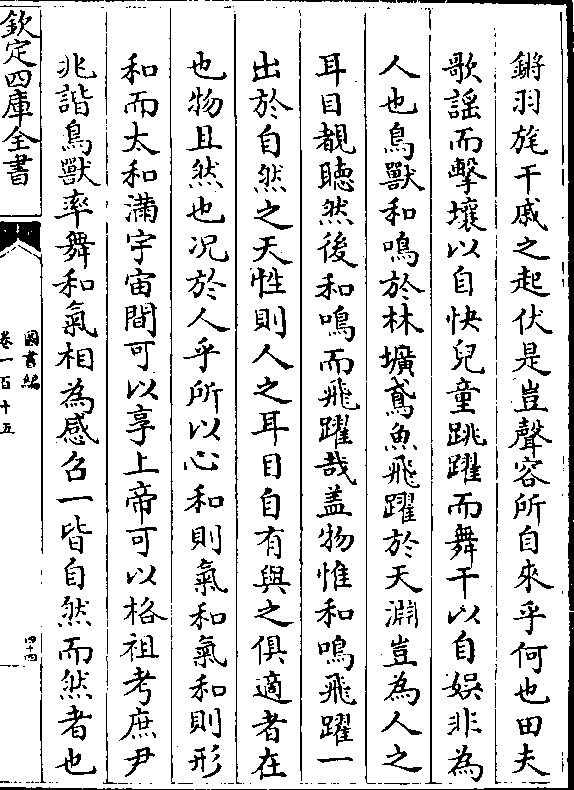 鏘羽旄干戚之起伏是豈聲容所自來乎何也田夫
歌謡而擊壤以自快兒童跳躍而舞干以自娛非為
人也鳥獸和鳴於林壙鳶魚飛躍於天淵豈為人之
耳目覩聽然後和鳴而飛躍哉盖物惟和鳴飛躍一
出於自然之天性則人之耳目自有與之俱適者在
也物且然也况於人乎所以心和則氣和氣和則形
和而太和滿宇宙間可以享上帝可以格祖考庶尹
兆諧鳥獸率舞和氣相為感召一皆自然而然者也
欽定四庫全書
圖書編
卷一百十五
四十四